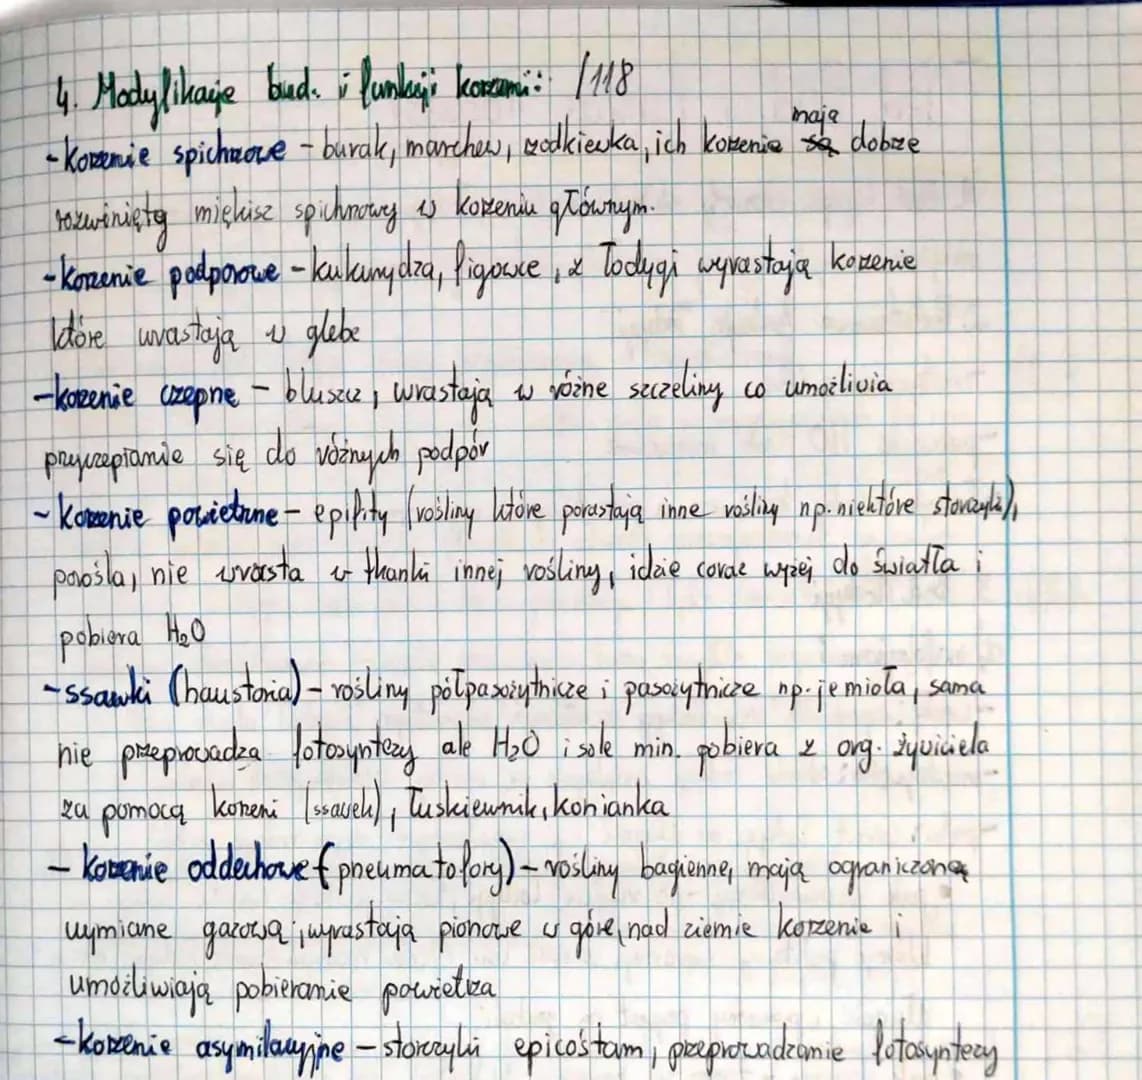 4. Modyfikacje bud. i funkcji korzeni: /118
mają
-korzenie spichrzowe - burak, marchew, rzodkiewka, ich korzenie są dobrze
rozwinięty miękisz spichrzowy w korzeniu głównym.
-korzenie podporowe - kukurydza, figowce, z łodygi wyrastają korzenie
które wrastają w glebe
-korzenie czepne - bluszcz, wrastają w różne szczeliny co umożliwia
przyczepianie się do różnych podpór
- korzenie powietrzne - epifity (rośliny które porastają inne rośliny np. niektóre storczyki),
porośla, nie wrasta w tkanki innej rośliny, idzie coraz wyżej do światła i
pobiera H₂O
-ssawki (haustoria) - rośliny półpasożytnicze i pasożytnicze np. jemioła, sama
nie przeprowadza fotosyntezy ale H₂O i sole min. pobiera z org. żywiciela
za pomocą korzeni (ssawek), łuskiewnik, kanianka
- korzenie oddechowe (pneumatofory) - rośliny bagienne, mają ograniczoną
wymiane gazową, wyrastają pionowe w górę, nad ziemie korzenie i
umożliwiają pobieranie powietrza
-korzenie asymilacyjne - storczyki epicostam, przeprowadzanie fotosyntezy